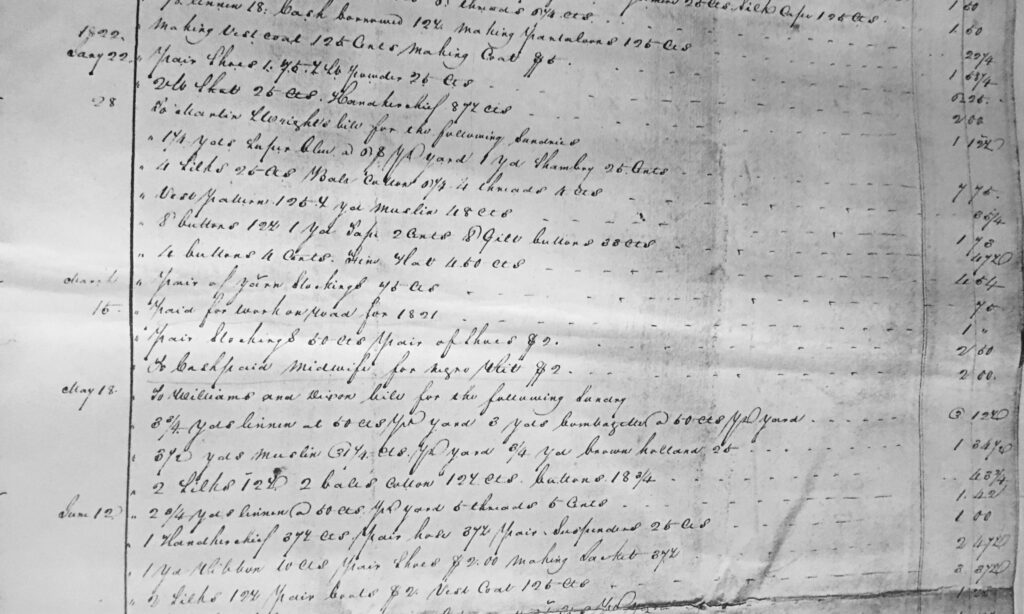 To Linnen 18: Cash borrowed 12½ Making Pantaloons 125 Cts 1 50
1822. Making Vest coat 125 Cents Making Coat $5.
Jany 22. " Pair Shoes 1.75. Lb Powder 25 Cts
" 2 lb Shot 25 Cts. Handkerchief 87½ Cts
28 To Martin Wright's bill for the following Sundries
" 1¼ yds Super Blue @ $8 Pr yard 1 yd Shambry 25 Cents 2 00
" 4 Silks 25 Cts Ball Cotton 6¼ 4 threads 4 Cts
" Vest Pattern 125 yd Muslin 48 Cts 7 75
" 8 buttons 12½ 1 yd Tape 2 Cents 8 Gilt buttons 33 Cts 35¼
" 4 buttons 4 Cents. Fine Hat 4.50 Cts 1 73
March 1 " Pair of yarn Stockings 75 Cts 4 54
15 " Paid for work on Road for 1821 75
" Pair Stockings 50 Cts Pair of Shoes $2. 1 "
" To Cash paid Midwife for negro $2 2 50
May 18 " To Williams and Dixon bill for the following Sundry 2 00
" 3¾ yds linnen at 50 Cts Pr yard 3 yds bombazette @ 50 Cts Pr yard 3 12½
" 3½ yds Muslin 31¼ Cts. Pr yard ¾ yd brown holland 25 1 34½
" 2 Silks 12½ 2 balls Cotton 12½ Cts. buttons 18¾ 43¾
June 12 " 2¾ yds linnen @ 50 Cts Pr yard 5 threads 5 Cents 1.42
" 1 Handkerchief 37½ Cts Pair hose 37½ Pair Suspenders 25 Cts 1 00
" 1 yd Ribbon 10 Cts Pair Shoes $2.00 Making Jacket 37½ 2 47½
" 2 Silks 12½ Pair Boots $2 Vest Coat 125 Cts 3 37½